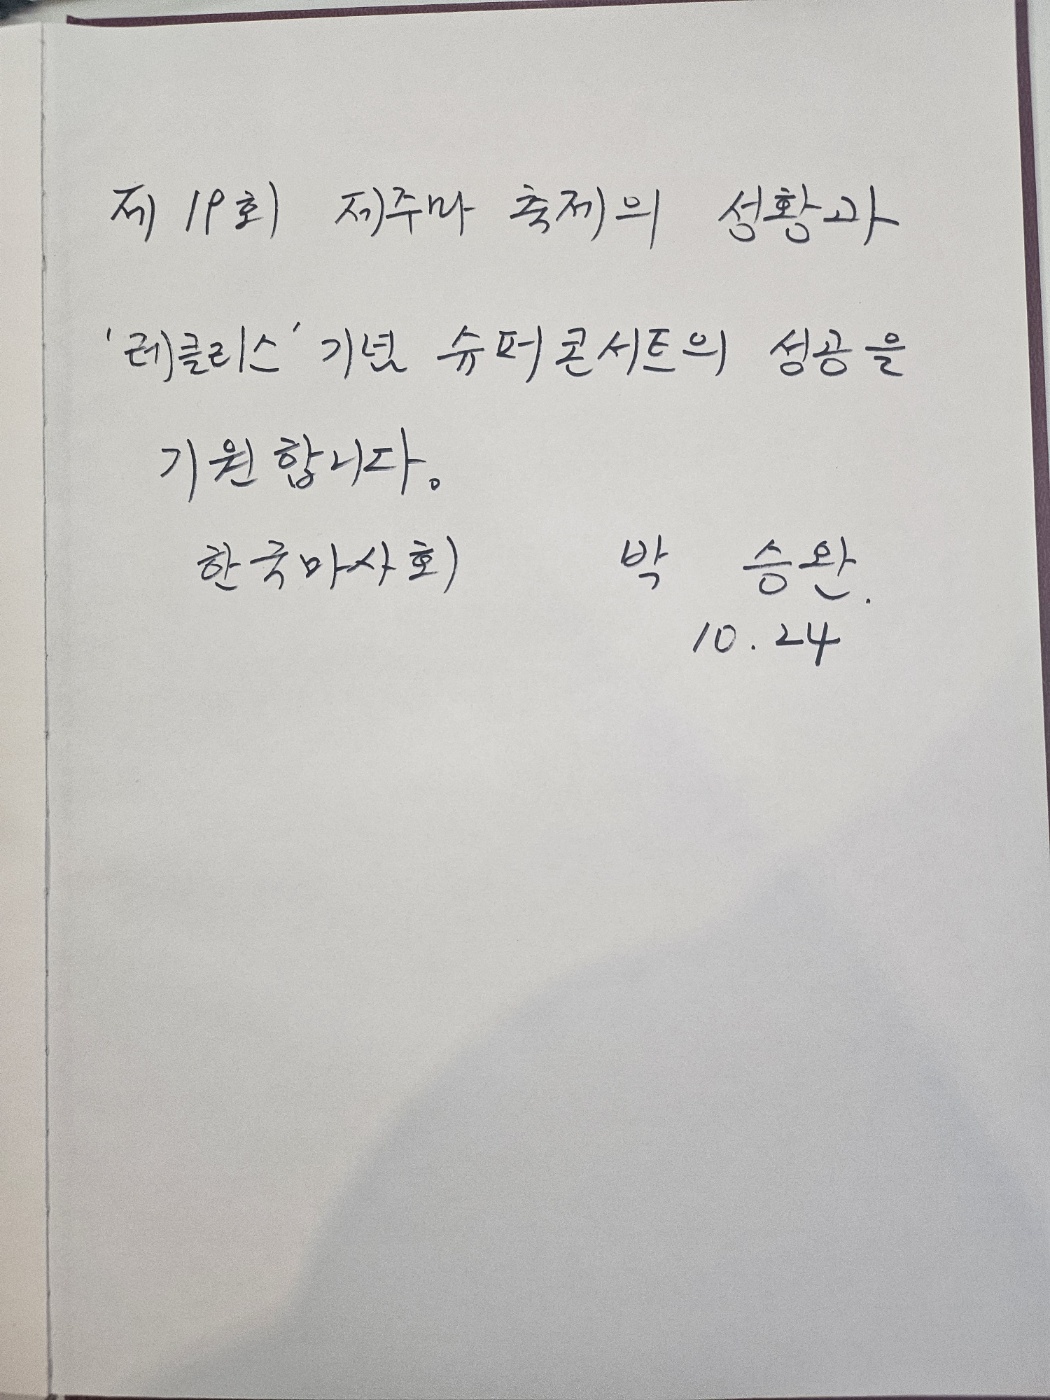 제 19회 제주마 축제의 성황과
'레클리스' 기념 슈퍼콘서트의 성공을
기원합니다.
한국마사회 박 승완.
10.24